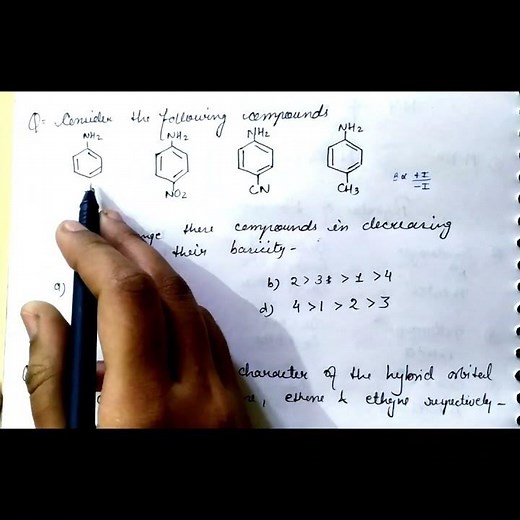 Q= Consider the following compounds
NH2 NH2 NH2 NH2
NO2 CN CH3
B∝ +I
-I
these compounds in decreasing
their basicity -
a) b) 2 > 3 > 1 > 4
d) 4 > 1 > 2 > 3
character of the hybrid orbital
, ethene & ethyne respectively -